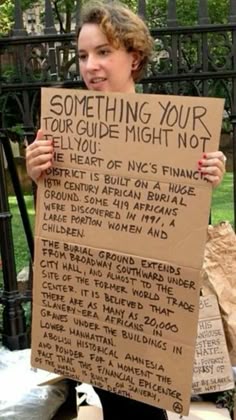 SOMETHING YOUR
TOUR GUIDE MIGHT NOT
TELL YOU:
THE HEART OF NYC'S FINANCIAL
DISTRICT IS BUILT ON A HUGE
18TH CENTURY AFRICAN BURIAL
GROUND. SOME 419 AFRICANS
WERE DISCOVERED IN 1991, A
LARGE PORTION WOMEN AND
CHILDREN.
THE BURIAL GROUND EXTENDS
FROM BROADWAY SOUTHWARD UNDER
CITY HALL, AND ALMOST TO THE
SITE OF THE FORMER WORLD TRADE
CENTER. IT IS BELIEVED THAT
THERE ARE AS MANY AS 20,000
SLAVERY-ERA AFRICANS IN
GRAVES UNDER THE BUILDINGS IN
LOWER MANHATTAN.
ABOLISH HISTORICAL AMNESIA
AND PONDER FOR A MOMENT THE
FACT THAT THIS FINANCIAL EPICENTER
OF THE WORLD IS BUILT ON SLAVERY
HATE
SLAVE